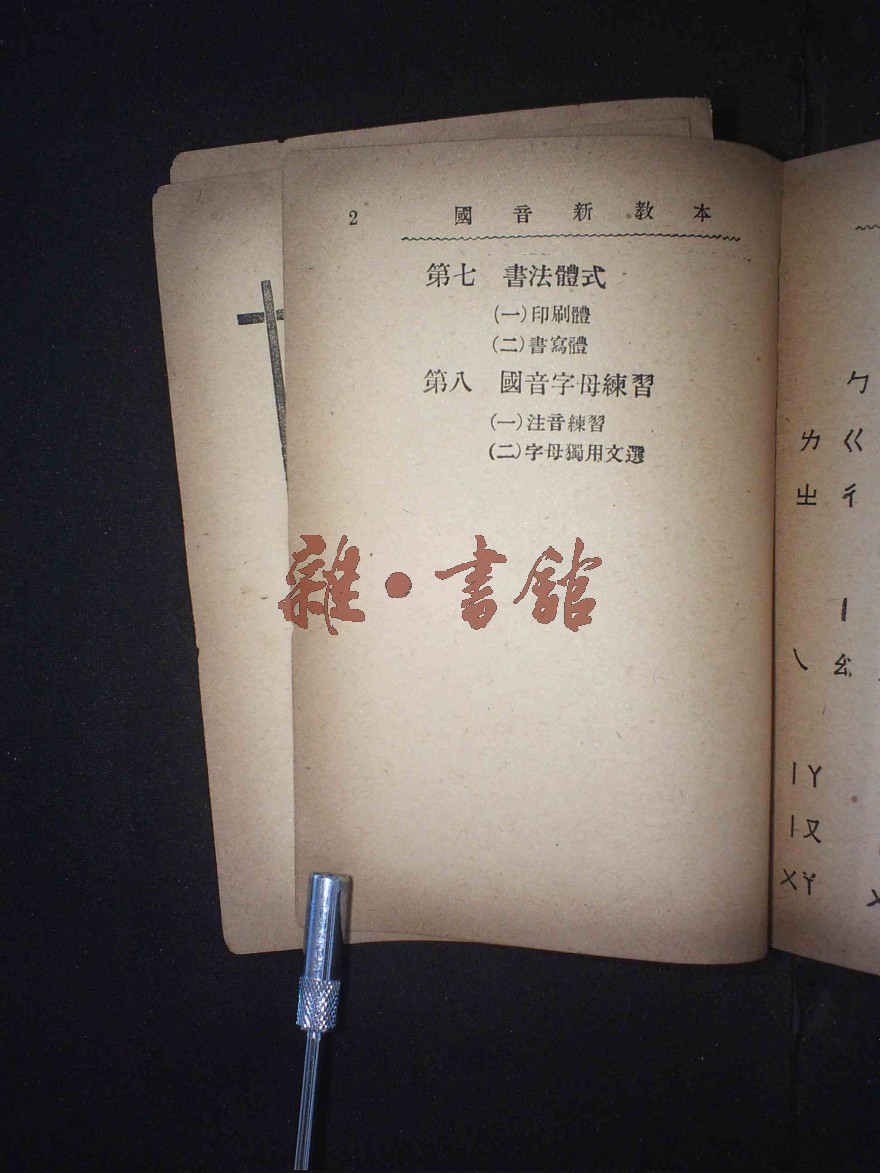 2 國音新教本
第七 書法體式
(一)印刷體
(二)書寫體
第八 國音字母練習
(一)注音練習
(二)字母獨用文選
雜·書館
ㄅ
ㄌ ㄍ
ㄓ ㄔ
ㄧ
ㄟ ㄠ
ㄧㄚ
ㄧㄡ
ㄨㄚ ㄨ